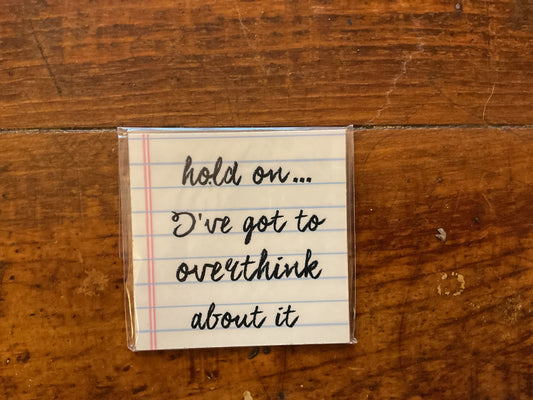 hold on...
I've got to
overthink
about it